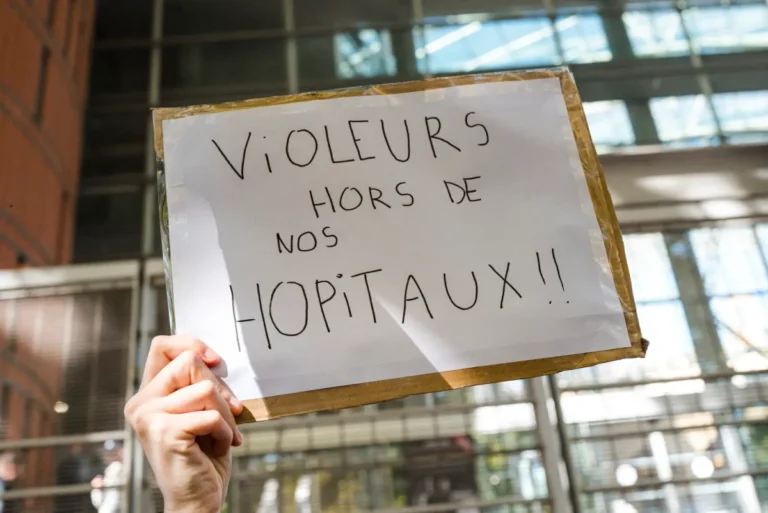 ViOLEURS
HORS DE
NOS
HOPiTAUX !!